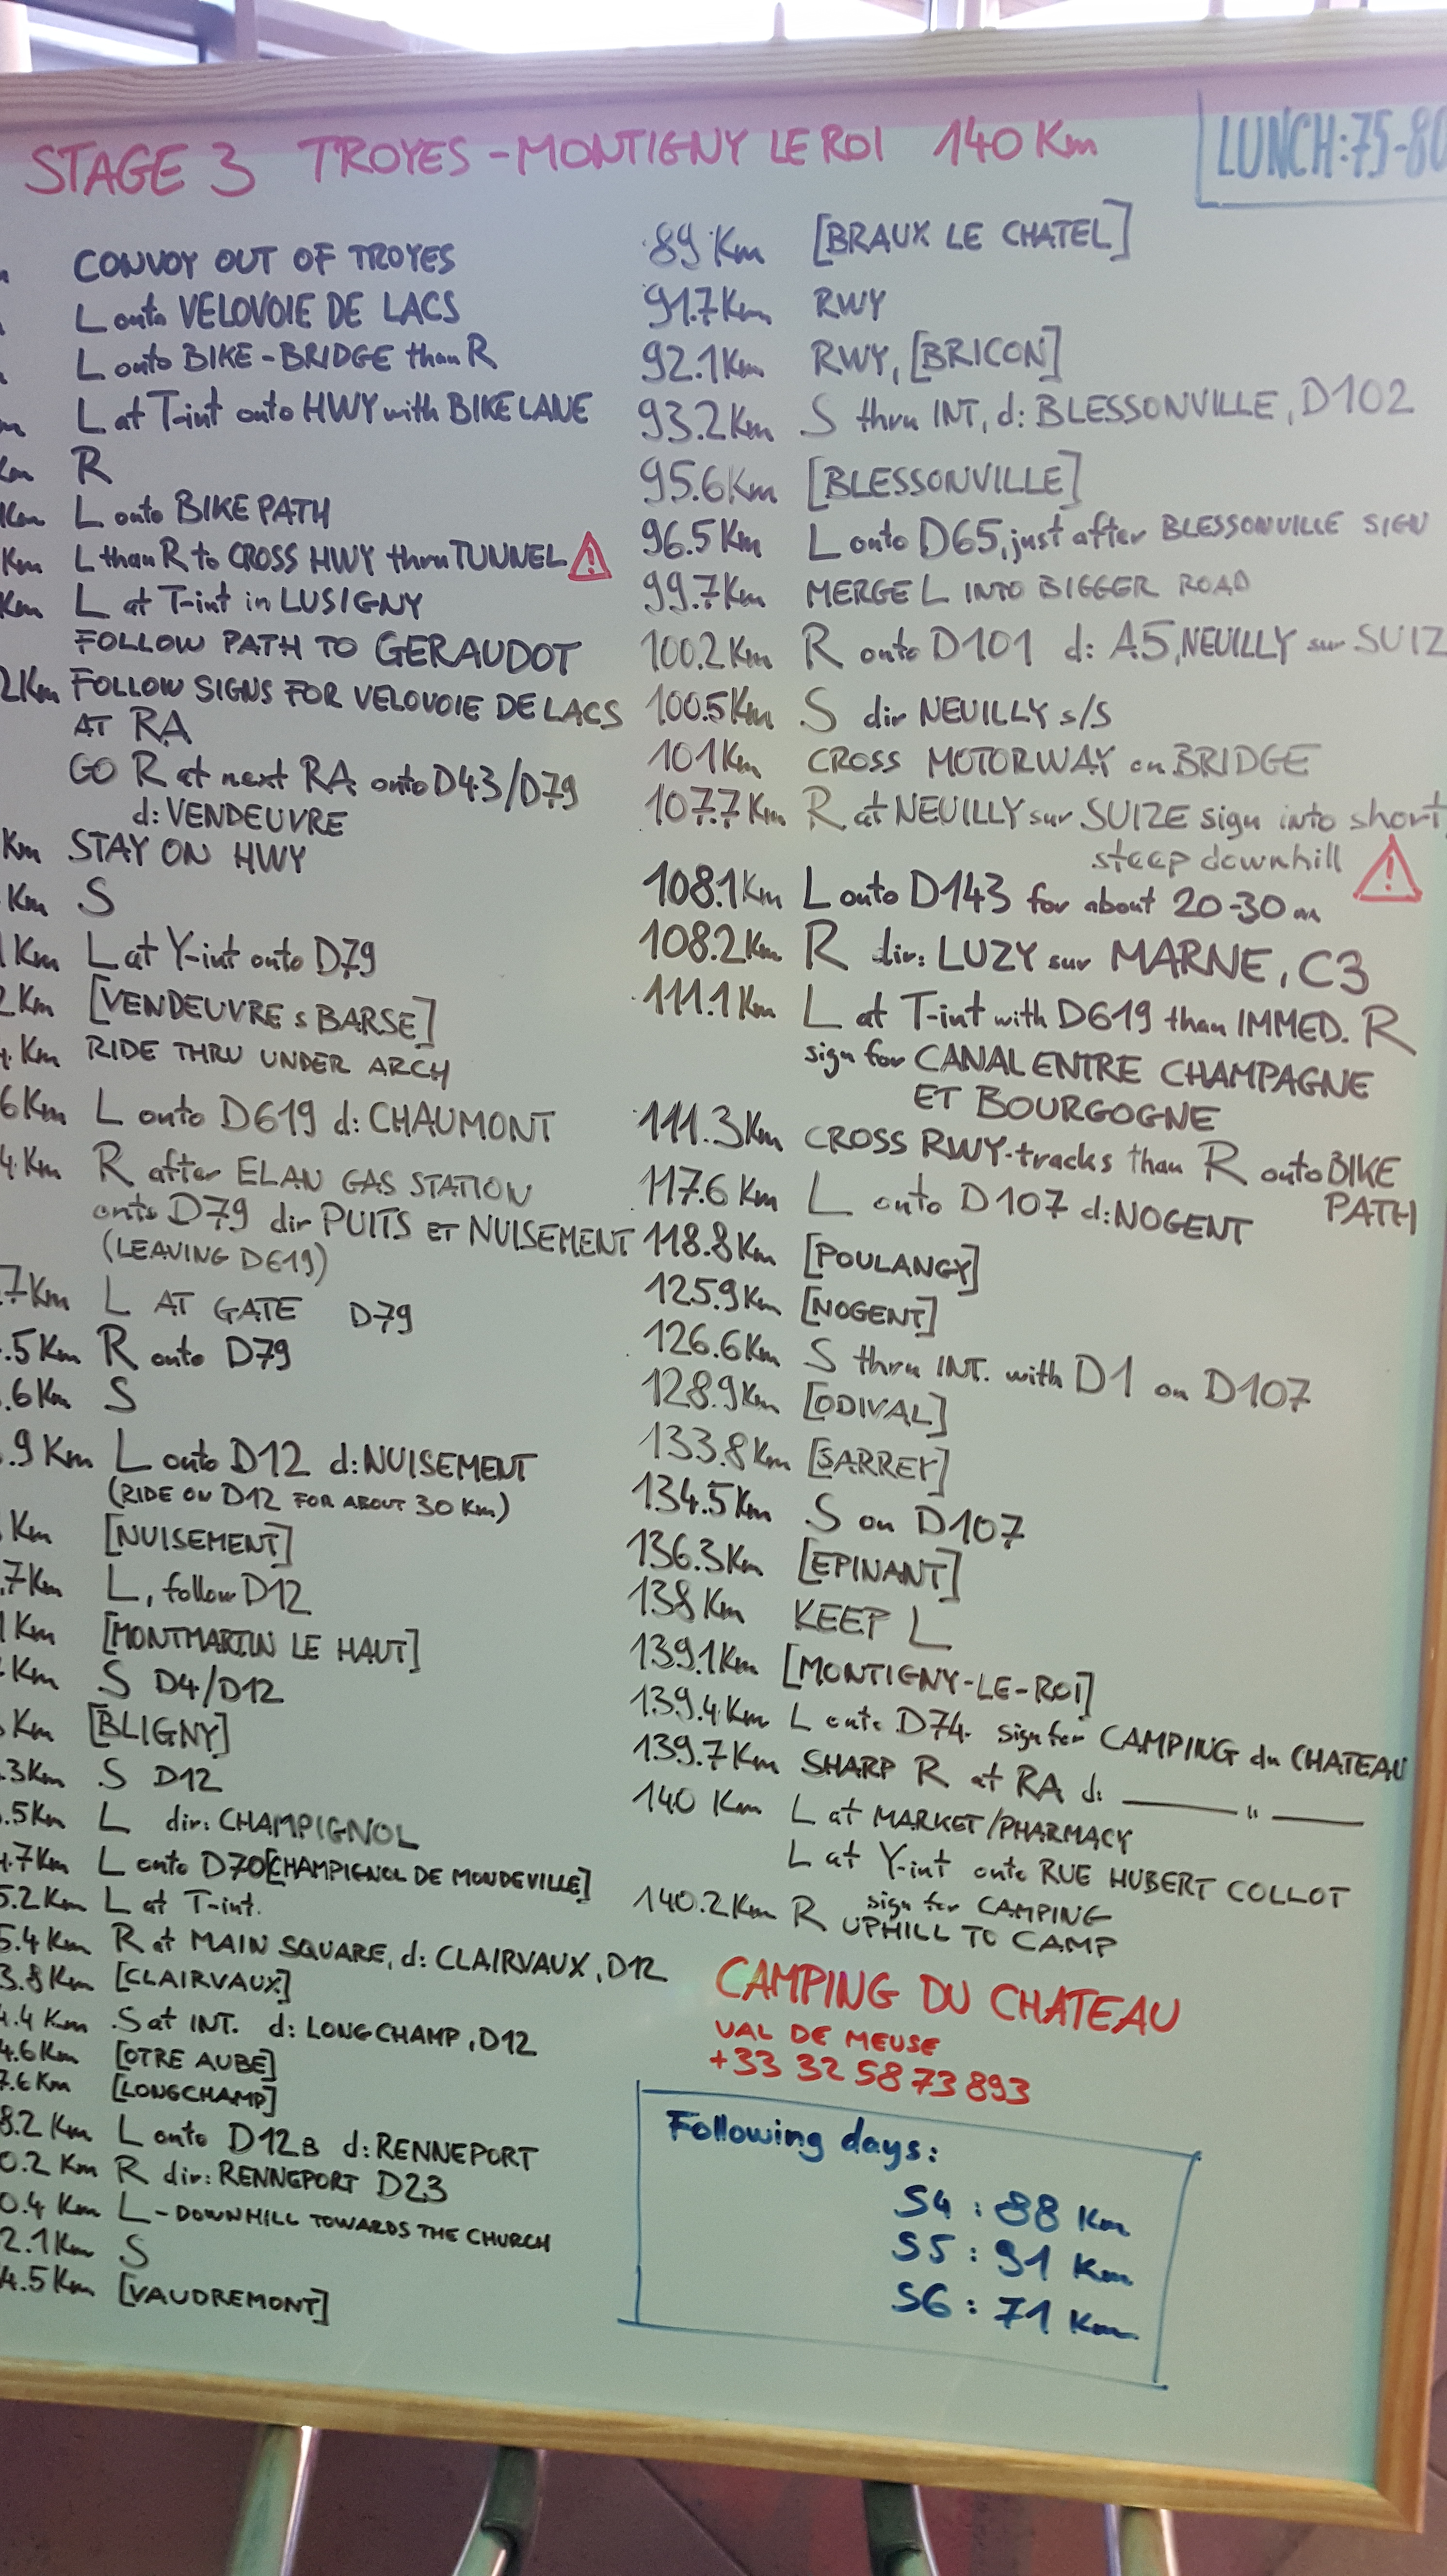 STAGE 3 TROYES - MONTIGNY LE ROI 140 Km
LUNCH: 75-80
CONVOY OUT OF TROYES
L onto VELOVOIE DE LACS
L onto BIKE-BRIDGE than R
L at T-int onto HWY with BIKE LANE
Km R
Km L onto BIKE PATH
Km L than R to CROSS HWY thru TUNNEL
Km L at T-int in LUSIGNY
FOLLOW PATH TO GERAUDOT
2Km FOLLOW SIGNS FOR VELOVOIE DE LACS
AT RA
GO R at next RA onto D43/D79
d: VENDEUVRE
Km STAY ON HWY
Km S
1Km L at Y-int onto D79
2Km [VENDEUVRE s BARSE]
4.Km RIDE THRU UNDER ARCH
6Km L onto D619 d: CHAUMONT
4.Km R after ELAN GAS STATION
onto D79 dir PUITS ET NUISEMENT
(LEAVING D619)
.7Km L AT GATE D79
.5Km R onto D79
.6Km S
.9Km L onto D12 d: NUISEMENT
(RIDE ON D12 FOR ABOUT 30 Km)
Km [NUISEMENT]
.7Km L, follow D12
1Km [MONTMARTIN LE HAUT]
Km S D4/D12
Km [BLIGNY]
.3Km S D12
.5Km L dir: CHAMPIGNOL
4.7Km L onto D70 [CHAMPIGNOL DE MONDEVILLE]
5.2Km L at T-int.
5.4Km R at MAIN SQUARE, d: CLAIRVAUX, D12
3.8Km [CLAIRVAUX]
4.4Km S at INT. d: LONGCHAMP, D12
4.6Km [OTRE AUBE]
7.6Km [LONGCHAMP]
8.2Km L onto D12B d: RENNEPORT
0.2Km R dir: RENNEPORT D23
0.4Km L - DOWNHILL TOWARDS THE CHURCH
2.1Km S
4.5Km [VAUDREMONT]
89 Km [BRAUX LE CHATEL]
91.7Km RWY
92.1Km RWY, [BRICON]
93.2Km S thru INT, d: BLESSONVILLE, D102
95.6Km [BLESSONVILLE]
96.5Km L onto D65, just after BLESSONVILLE SIGN
99.7Km MERGE L INTO BIGGER ROAD
100.2Km R onto D101 d: A5, NEUILLY sur SUIZ
100.5Km S dir NEUILLY s/S
101Km CROSS MOTORWAY on BRIDGE
107.7Km R at NEUILLY sur SUIZE sign into short,
steep downhill
108.1Km L onto D143 for about 20-30m
108.2Km R dir: LUZY sur MARNE, C3
111.1Km L at T-int with D619 than IMMED. R
sign for CANAL ENTRE CHAMPAGNE
ET BOURGOGNE
111.3Km CROSS RWY-tracks than R onto BIKE
PATH
117.6 Km L onto D107 d: NOGENT
118.8Km [POULANGY]
125.9Km [NOGENT]
126.6Km S thru INT. with D1 on D107
128.9Km [ODIVAL]
133.8Km [SARREY]
134.5Km S on D107
136.3Km [EPINANT]
138 Km KEEP L
139.1Km [MONTIGNY-LE-ROI]
139.4Km L onto D74. sign for CAMPING du CHATEAU
139.7Km SHARP R at RA d: —— " ——
140 Km L at MARKET/PHARMACY
L at Y-int onto RUE HUBERT COLLOT
sign for CAMPING
140.2Km R UPHILL TO CAMP
CAMPING DU CHATEAU
VAL DE MEUSE
+33 32 58 73 893
Following days:
S4: 88 Km
S5: 91 Km
S6: 71 Km